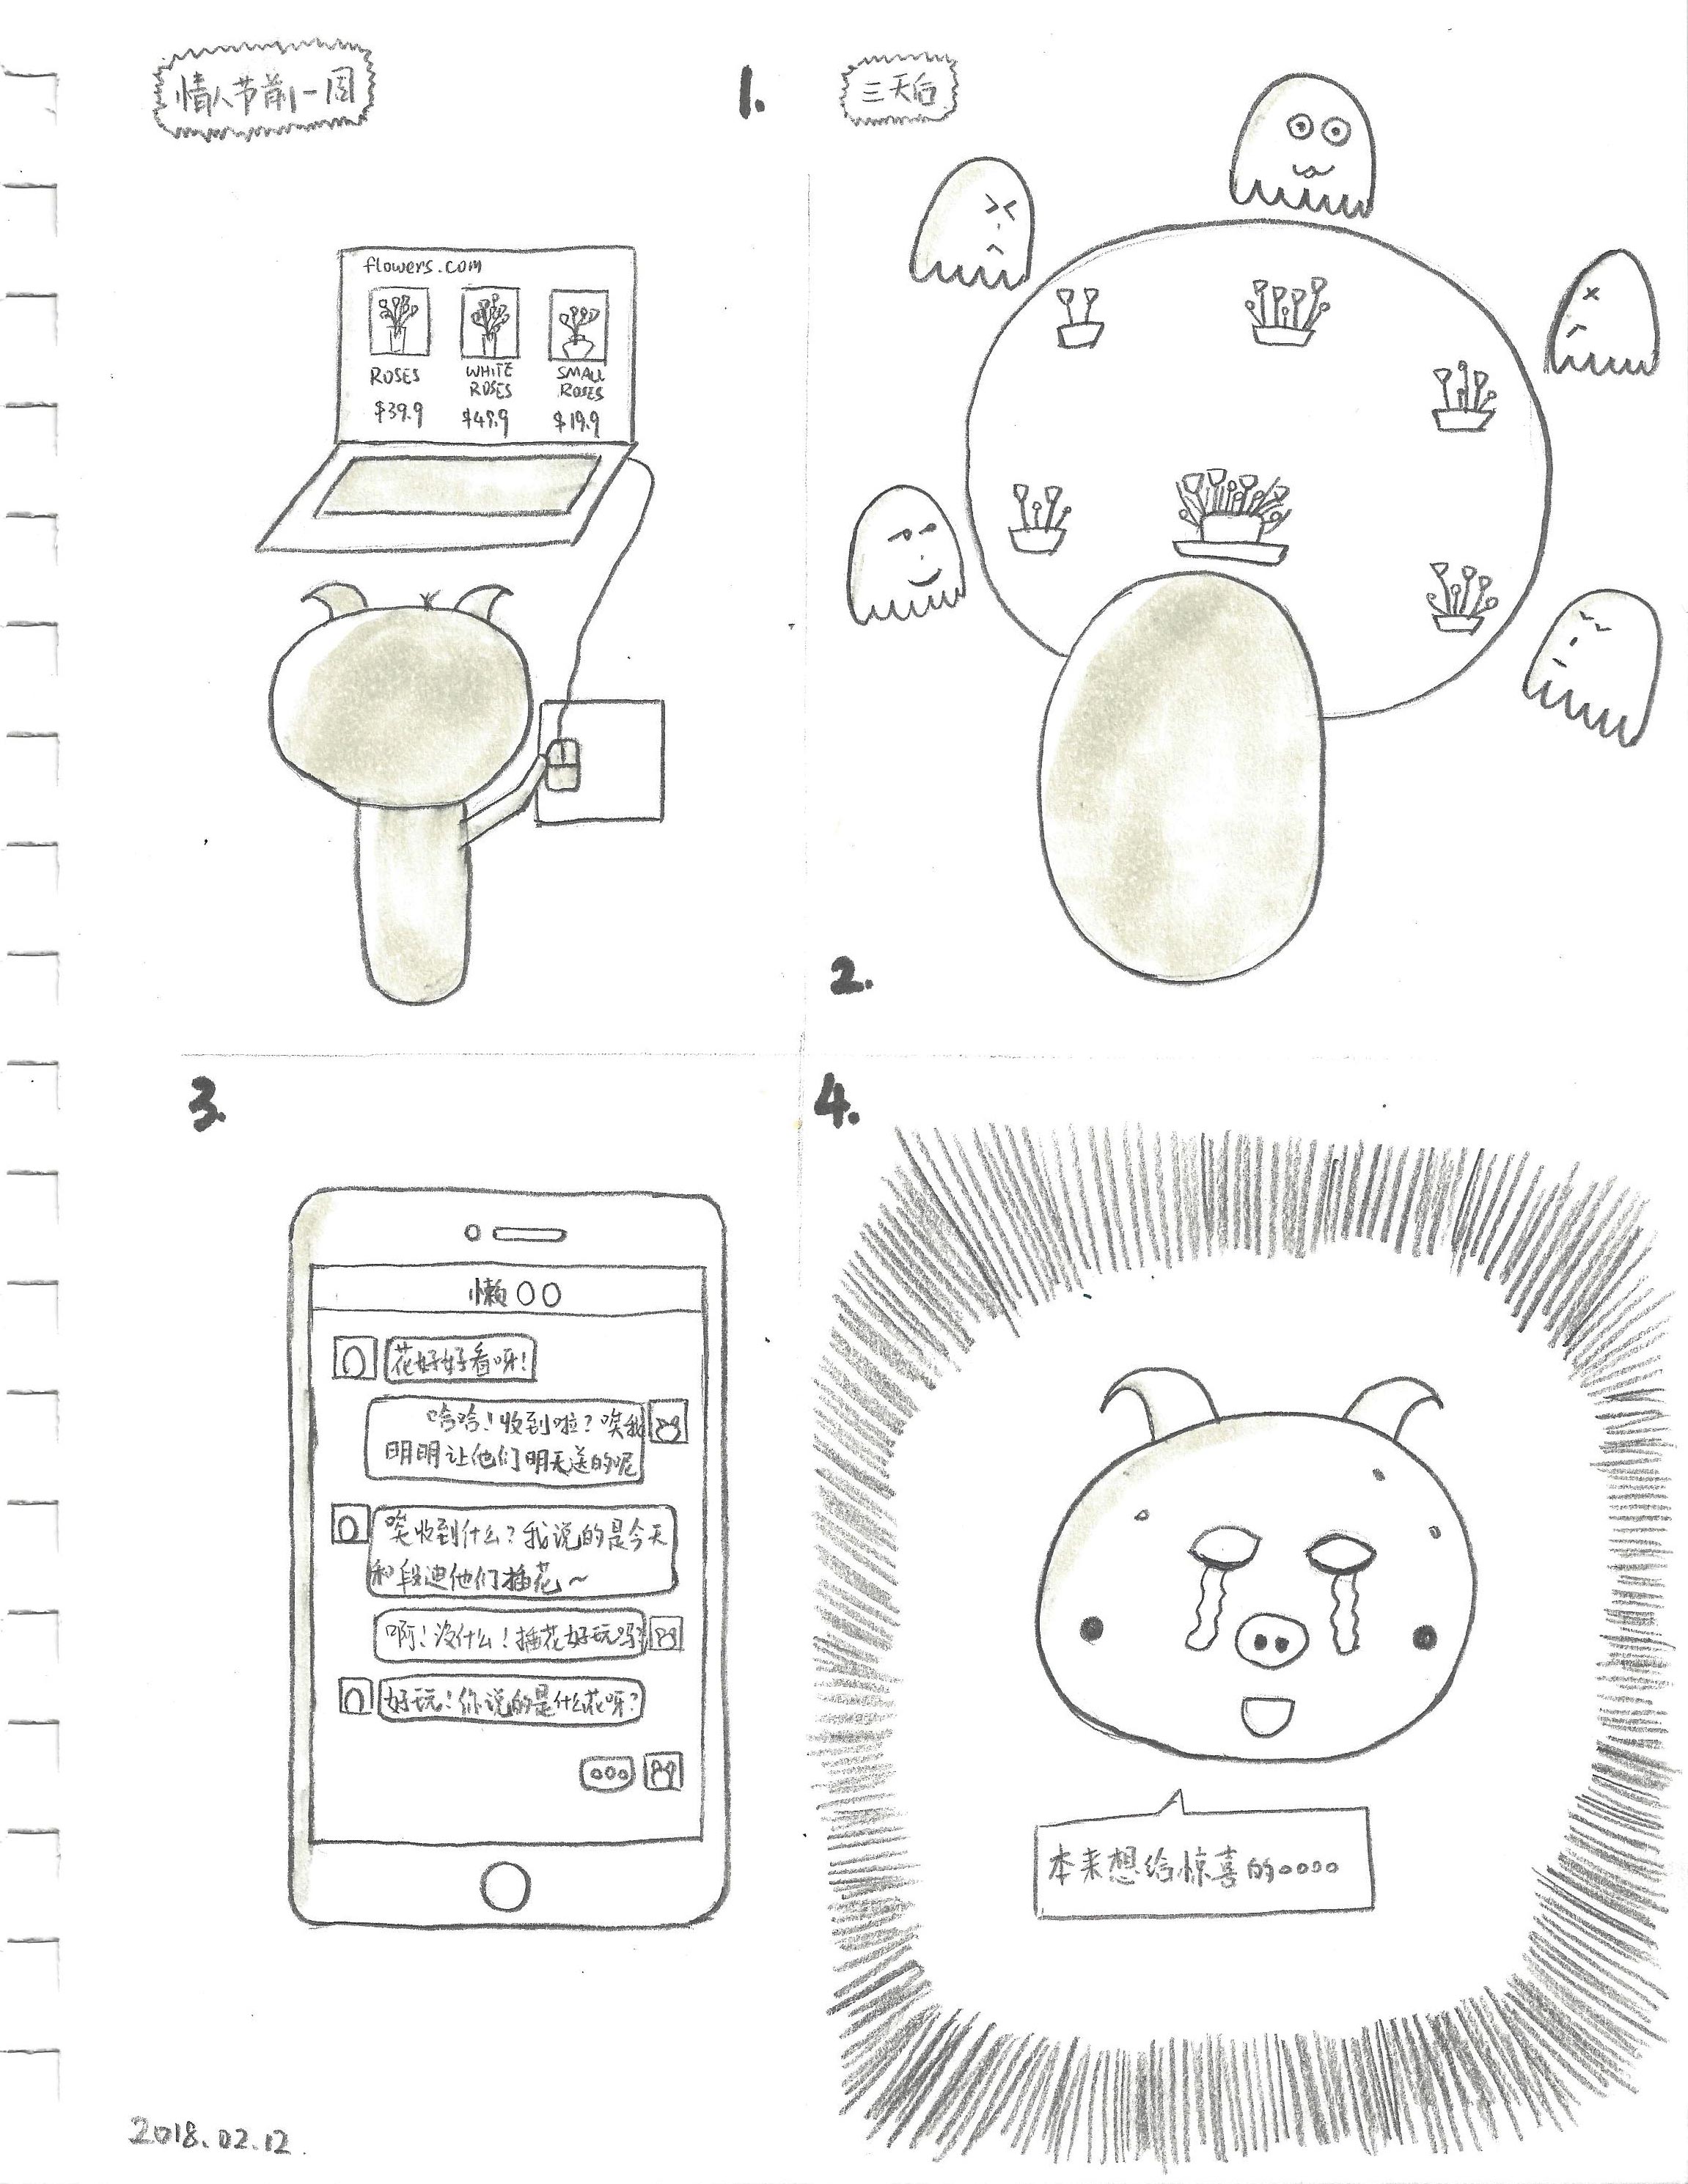 情人节前一周
1.
flowers.com
ROSES
$39.9
WHITE
ROSES
$49.9
SMALL
ROSES
$19.9
三天后
2.
3.
懒〇〇
花好好看呀!
哈哈!收到啦?唉我
明明让他们明天送的呢
唉收到什么?我说的是今天
和段迪他们插花~
啊!没什么!插花好玩吗?
好玩!你说的是什么花呀?
ooo
4.
本来想给惊喜的oooo
2018.02.12